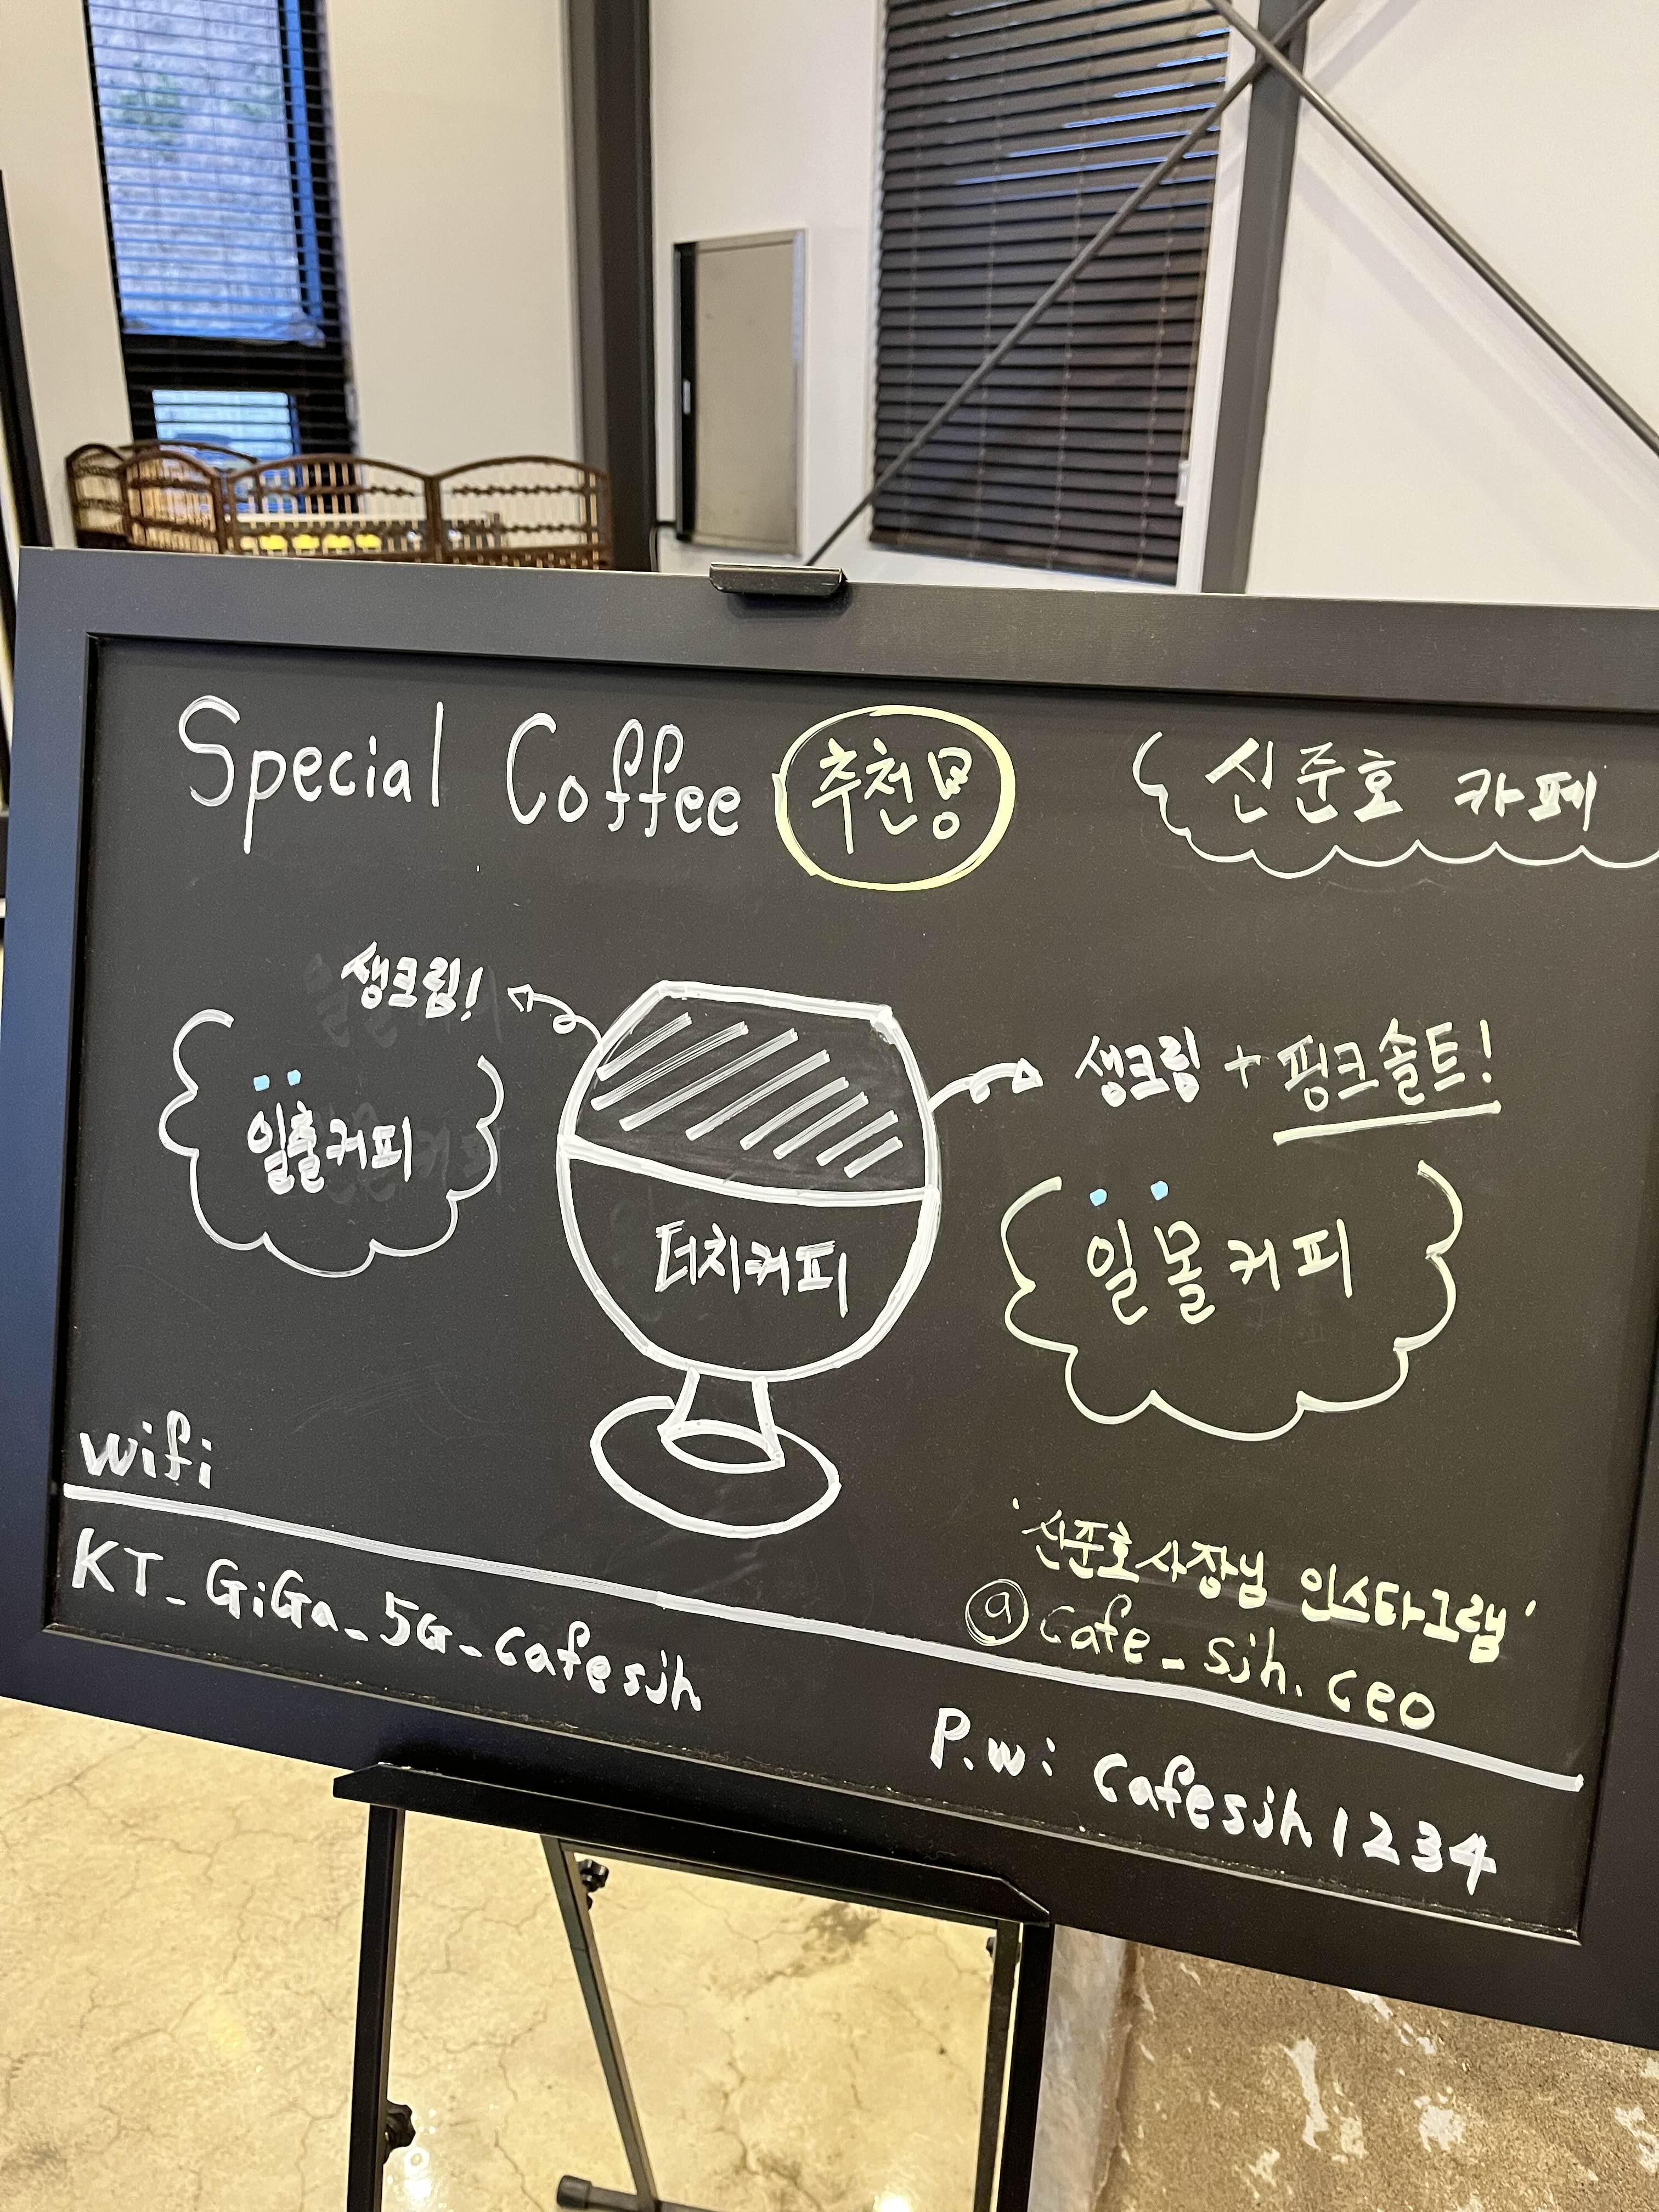 Special Coffee 추천용
신준호 카페
생크림!
일출커피
생크림 + 핑크솔트!
일몰커피
더치커피
wifi
KT_GiGa_5G_cafesjh
'신준호사장님 인스타그램'
@cafe_sjh.ceo
P.w: cafesjh1234